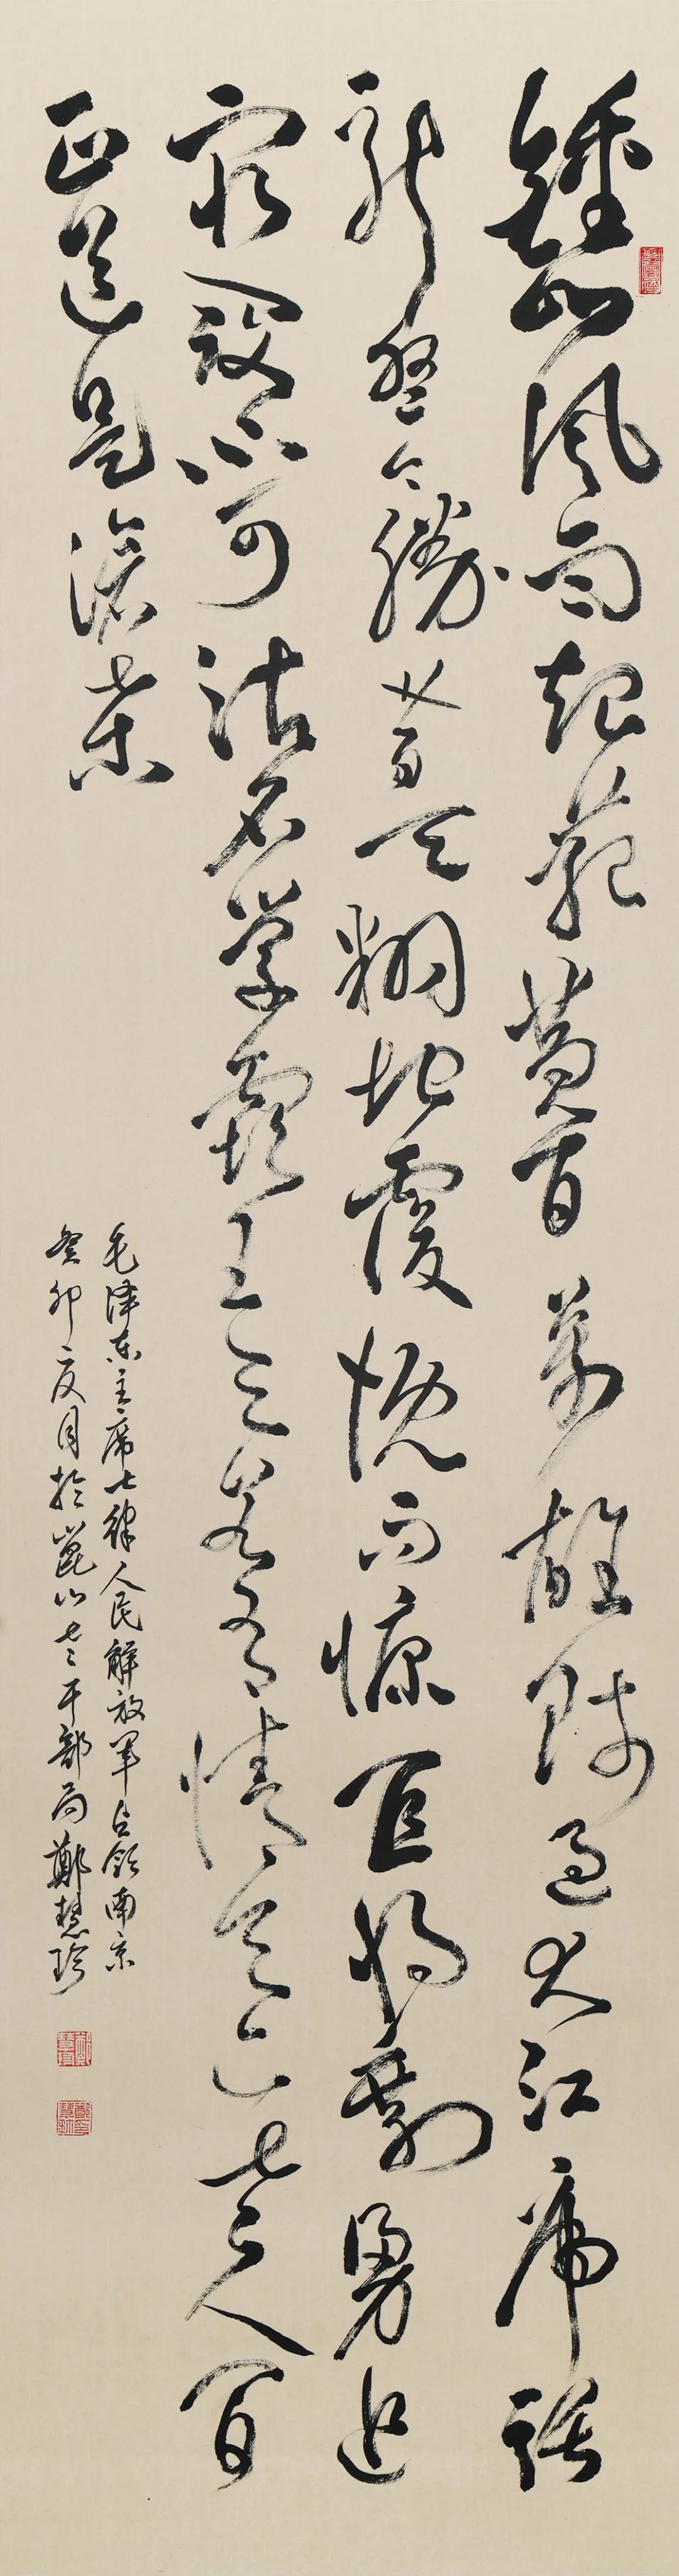 鍾山風雨起蒼黃百萬雄師過大江虎踞
龍盤今勝昔天翻地覆慨而慷宜將剩勇追
窮寇不可沽名學霸王天若有情天亦老人間
正道是滄桑
毛澤东主席七律人民解放軍占領南京
癸卯夏月於崑山老干部局鄭慧珍